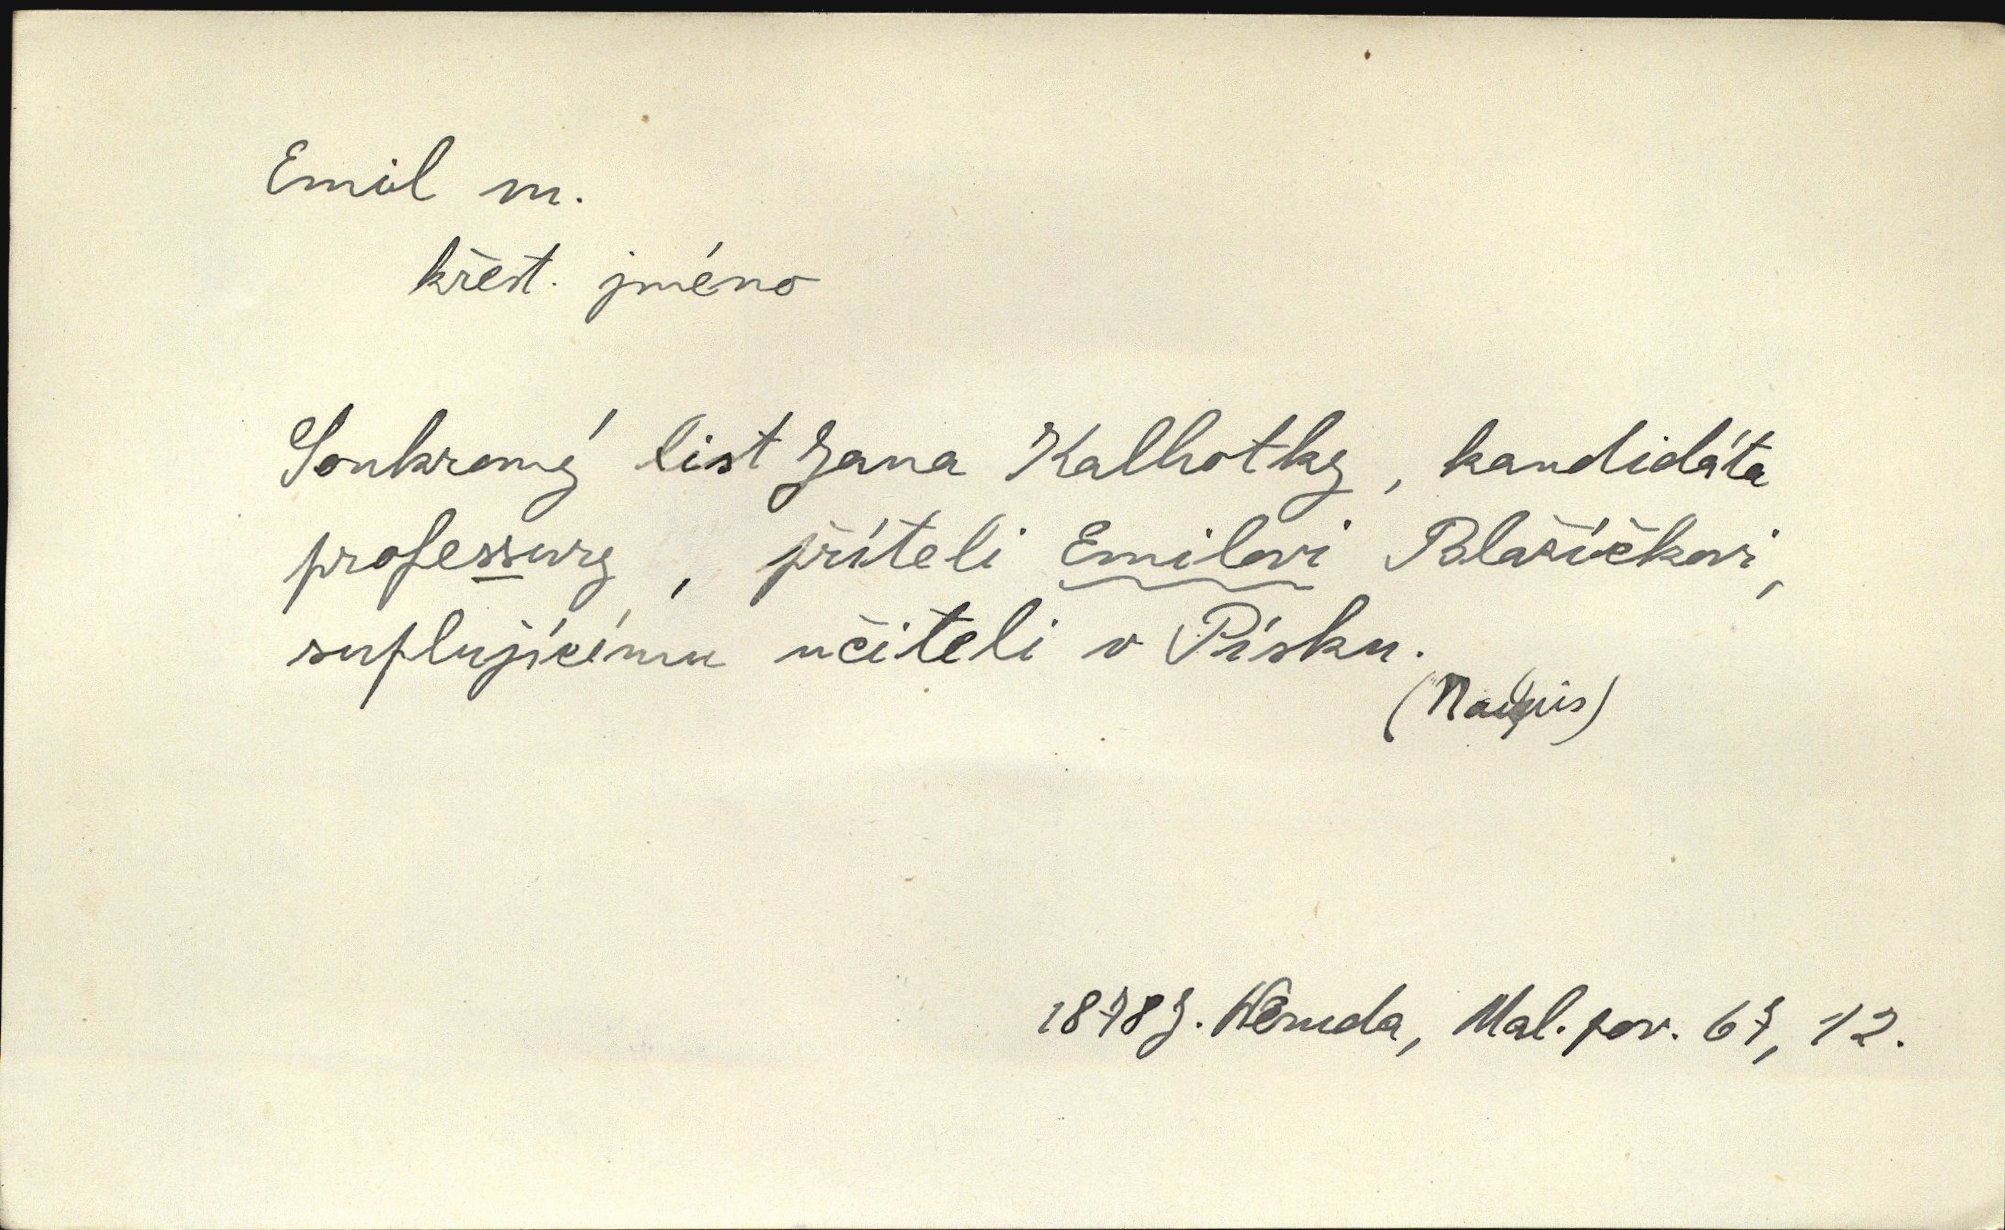 Emil m.
křest. jméno
Soukromý list Jana Kalhotky, kandidáta
professury, příteli Emilovi Polažíčkovi,
suplujícímu učiteli v Písku.
(Nadpis)
1878 J. Heruda, Mal. pov. 67, 12.